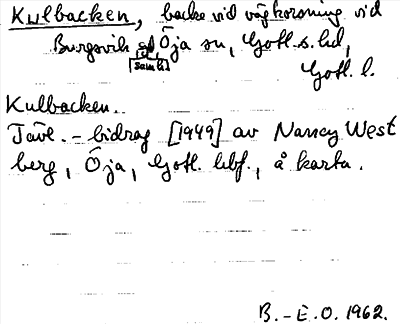 Kulbacken, backe vid vägkorsning vid
Burgsvik Öja sn, Gotl. s. hd,
Gotl. l.
Kulbacken.
Tävl.-bidrag [1949] av Nancy West
berg, Öja, Gotl. hbf., å karta.
B.-E.O. 1962.